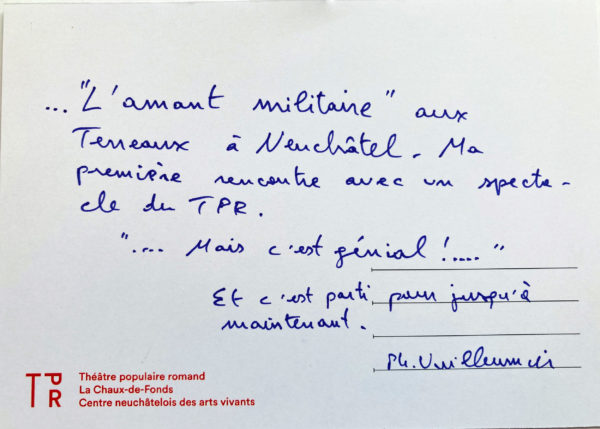 ... "L'amant militaire" aux
Terreaux à Neuchâtel. Ma
première rencontre avec un specta-
cle du TPR.
".... Mais c'est génial !....."
Et c'est parti pour jusqu'à
maintenant.
Ph. Vuilleumier
TPR
Théâtre populaire romand
La Chaux-de-Fonds
Centre neuchâtelois des arts vivants